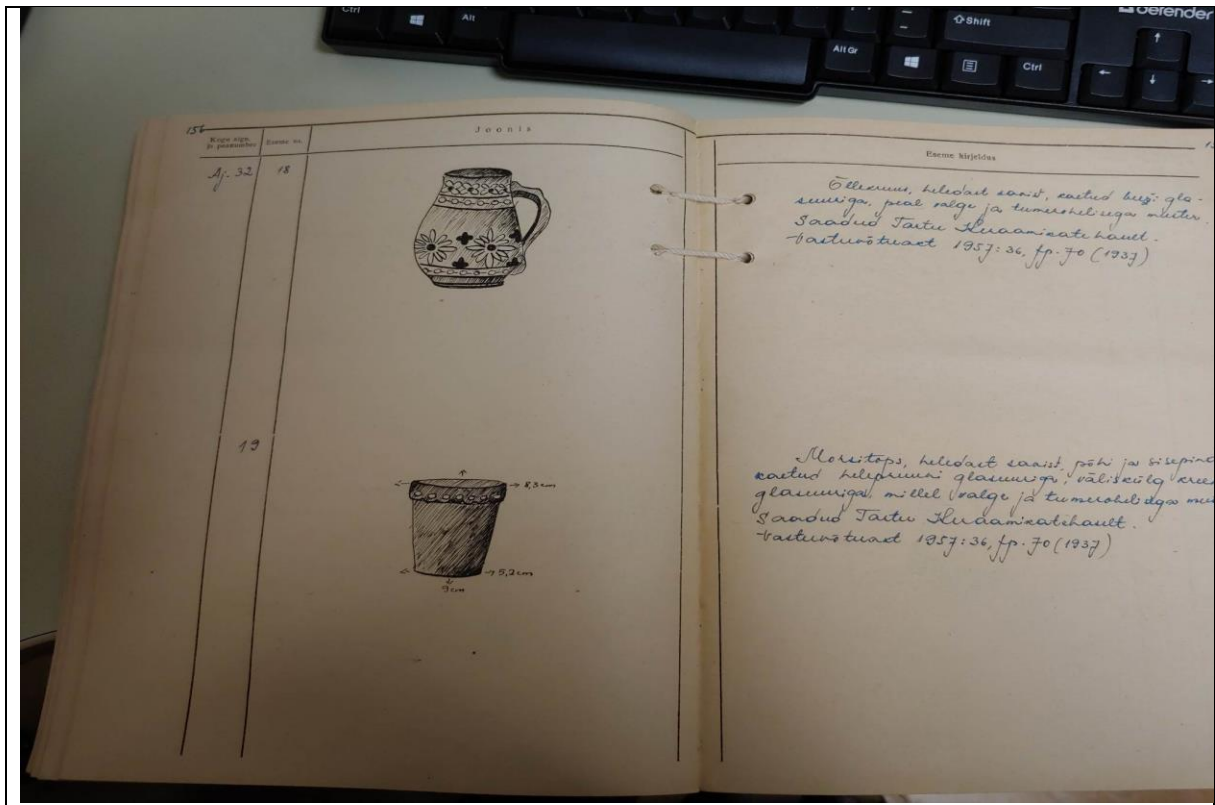 Ctrl
Alt
Alt Gr
Shift
Ctrl
defender
156
Kogu nipn. ja peanumber
Eseme nr.
Joonis
Eseme kirjeldus
Aj-32 18
Õllekruus, heledast savist, kaetud beeži gla-
suuriga, peal valge ja tumerohelisega muster.
Saadud Tartu Keraamikatehaselt.
Vastuvõtuakt 1957:36, jp. 70 (1937)
19
8,3 cm
5,2 cm
9 cm
Morsitops, heledast savist, põhi ja sisepind
kaetud helepruuni glasuuriga, väliskülg
glasuuriga, millel valge ja tumerohelisega
Saadud Tartu Keraamikatehaselt.
Vastuvõtuakt 1957:36, jp. 70 (1937)